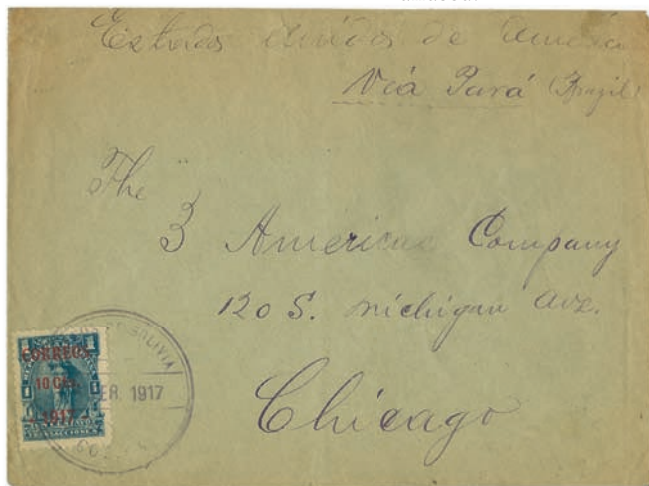 Estados Unidos de America
Via Pará (Brazil)
The
3 Americas Company
120 S. Michigan Ave.
Chicago
DE BOLIVIA
ER. 1917
CORREOS
10 Cts.
1917
1
1
1
1
TRANSACCIONES